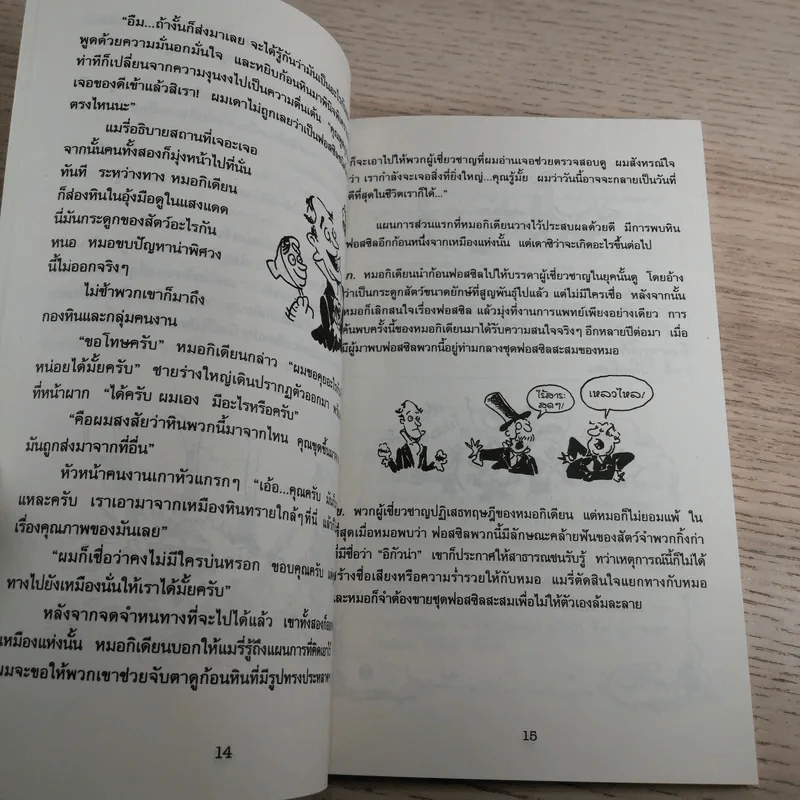 "อืม...ถ้างั้นก็ส่งมาเลย จะได้รู้กันว่ามันเป็น
พูดด้วยความมั่นอกมั่นใจ และหยิบก้อนหินมา
ท่าทีก็เปลี่ยนจากความงุนงงไปเป็นความตื่นเต้น
เจอของดีเข้าแล้วสิเรา! ผมเดาไม่ถูกเลยว่าเป็นฟอสซิล
ตรงไหนนะ"
แมรี่อธิบายสถานที่เจอะเจอ
จากนั้นคนทั้งสองก็มุ่งหน้าไปที่นั่น
ทันที ระหว่างทาง หมอกิเดียน
ก็ส่องหินในอุ้งมือดูในแสงแดด
นี่มันกระดูกของสัตว์อะไรกัน
หนอ หมอขบปัญหาน่าพิศวง
นี้ไม่ออกจริงๆ
ไม่ช้าพวกเขาก็มาถึง
กองหินและกลุ่มคนงาน
"ขอโทษครับ" หมอกิเดียนกล่าว "ผมขอคุย
หน่อยได้มั้ยครับ" ชายร่างใหญ่เดินปรากฏตัวออกมา
ที่หน้าผาก "ได้ครับ ผมเอง มีอะไรหรือครับ"
"คือผมสงสัยว่าหินพวกนี้มาจากไหน คุณขุดขึ้นมา
มันถูกส่งมาจากที่อื่น"
หัวหน้าคนงานเกาหัวแกรกๆ "เอ้อ...คุณครับ
แหละครับ เราเอามาจากเหมืองหินทรายใกล้ๆที่นี่
เรื่องคุณภาพของมันเลย"
"ผมก็เชื่อว่าคงไม่มีใครบ่นหรอก ขอบคุณครับ
ทางไปยังเหมืองนั่นให้เราได้มั้ยครับ"
หลังจากจดจำหนทางที่จะไปได้แล้ว เขาทั้งสองก็
เหมืองแห่งนั้น หมอกิเดียนบอกให้แมรี่รู้ถึงแผนการที่คิดเอาไว้
ผมจะขอให้พวกเขาช่วยจับตาดูก้อนหินที่มีรูปทรงประหลาดๆ
14
ก็จะเอาไปให้พวกผู้เชี่ยวชาญที่ผมอ่านเจอช่วยตรวจสอบดู ผมสังหรณ์ใจ
ว่า เรากำลังจะเจอสิ่งที่ยิ่งใหญ่...คุณรู้มั้ย ผมว่าวันนี้อาจจะกลายเป็นวันที่
ดีที่สุดในชีวิตเราก็ได้..."
แผนการส่วนแรกที่หมอกิเดียนวางไว้ประสบผลด้วยดี มีการพบหิน
ฟอสซิลอีกก้อนหนึ่งจากเหมืองแห่งนั้น แต่เดาซิว่าจะเกิดอะไรขึ้นต่อไป
ก. หมอกิเดียนนำก้อนฟอสซิลไปให้บรรดาผู้เชี่ยวชาญในยุคนั้นดู โดยอ้าง
ว่าเป็นกระดูกสัตว์ขนาดยักษ์ที่สูญพันธุ์ไปแล้ว แต่ไม่มีใครเชื่อ หลังจากนั้น
หมอก็เลิกสนใจเรื่องฟอสซิล แล้วมุ่งที่งานการแพทย์เพียงอย่างเดียว การ
ค้นพบครั้งนี้ของหมอกิเดียนมาได้รับความสนใจจริงๆ อีกหลายปีต่อมา เมื่อ
มีผู้มาพบฟอสซิลพวกนี้อยู่ท่ามกลางชุดฟอสซิลสะสมของหมอ
ไร้สาระ
สุดๆ!
เหลวไหล!
ข. พวกผู้เชี่ยวชาญปฏิเสธทฤษฎีของหมอกิเดียน แต่หมอก็ไม่ยอมแพ้ ใน
ที่สุดเมื่อหมอพบว่า ฟอสซิลพวกนี้มีลักษณะคล้ายฟันของสัตว์จำพวกกิ้งก่า
ที่มีชื่อว่า "อิกัวน่า" เขาก็ประกาศให้สาธารณชนรับรู้ ทว่าเหตุการณ์นี้ก็ไม่ได้
สร้างชื่อเสียงหรือความร่ำรวยให้กับหมอ แมรี่ตัดสินใจแยกทางกับหมอ
และหมอก็จำต้องขายชุดฟอสซิลสะสมเพื่อไม่ให้ตัวเองล้มละลาย
15